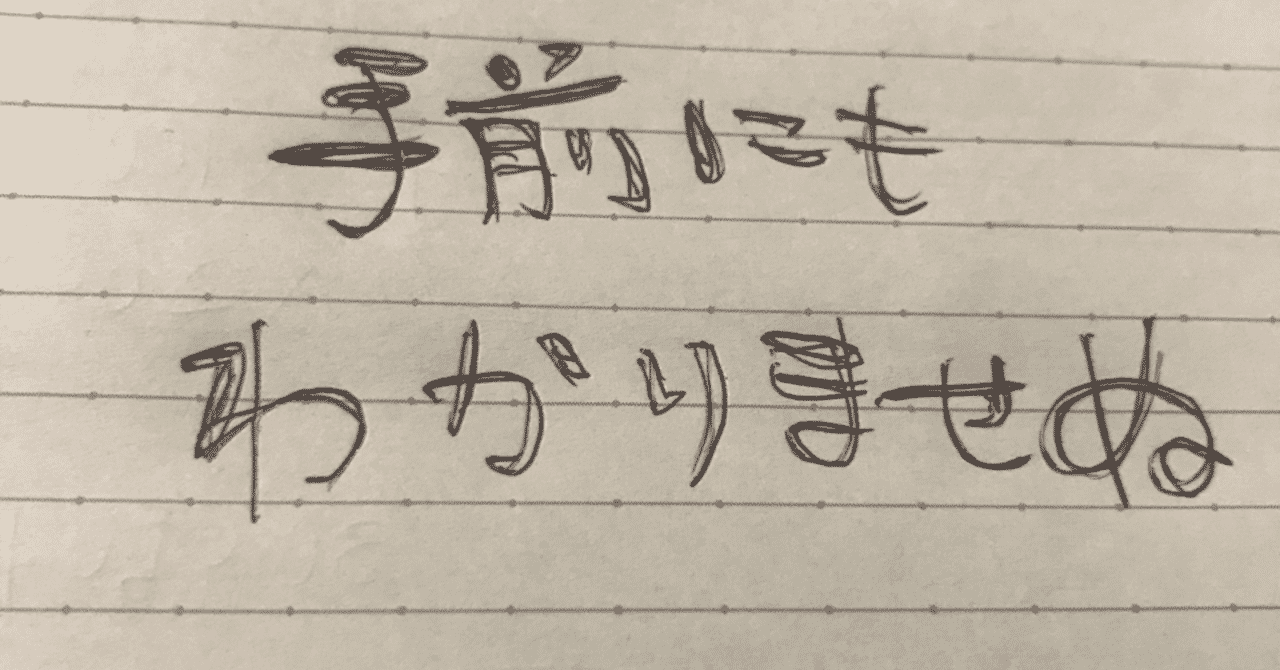 手前にも
わかりませぬ